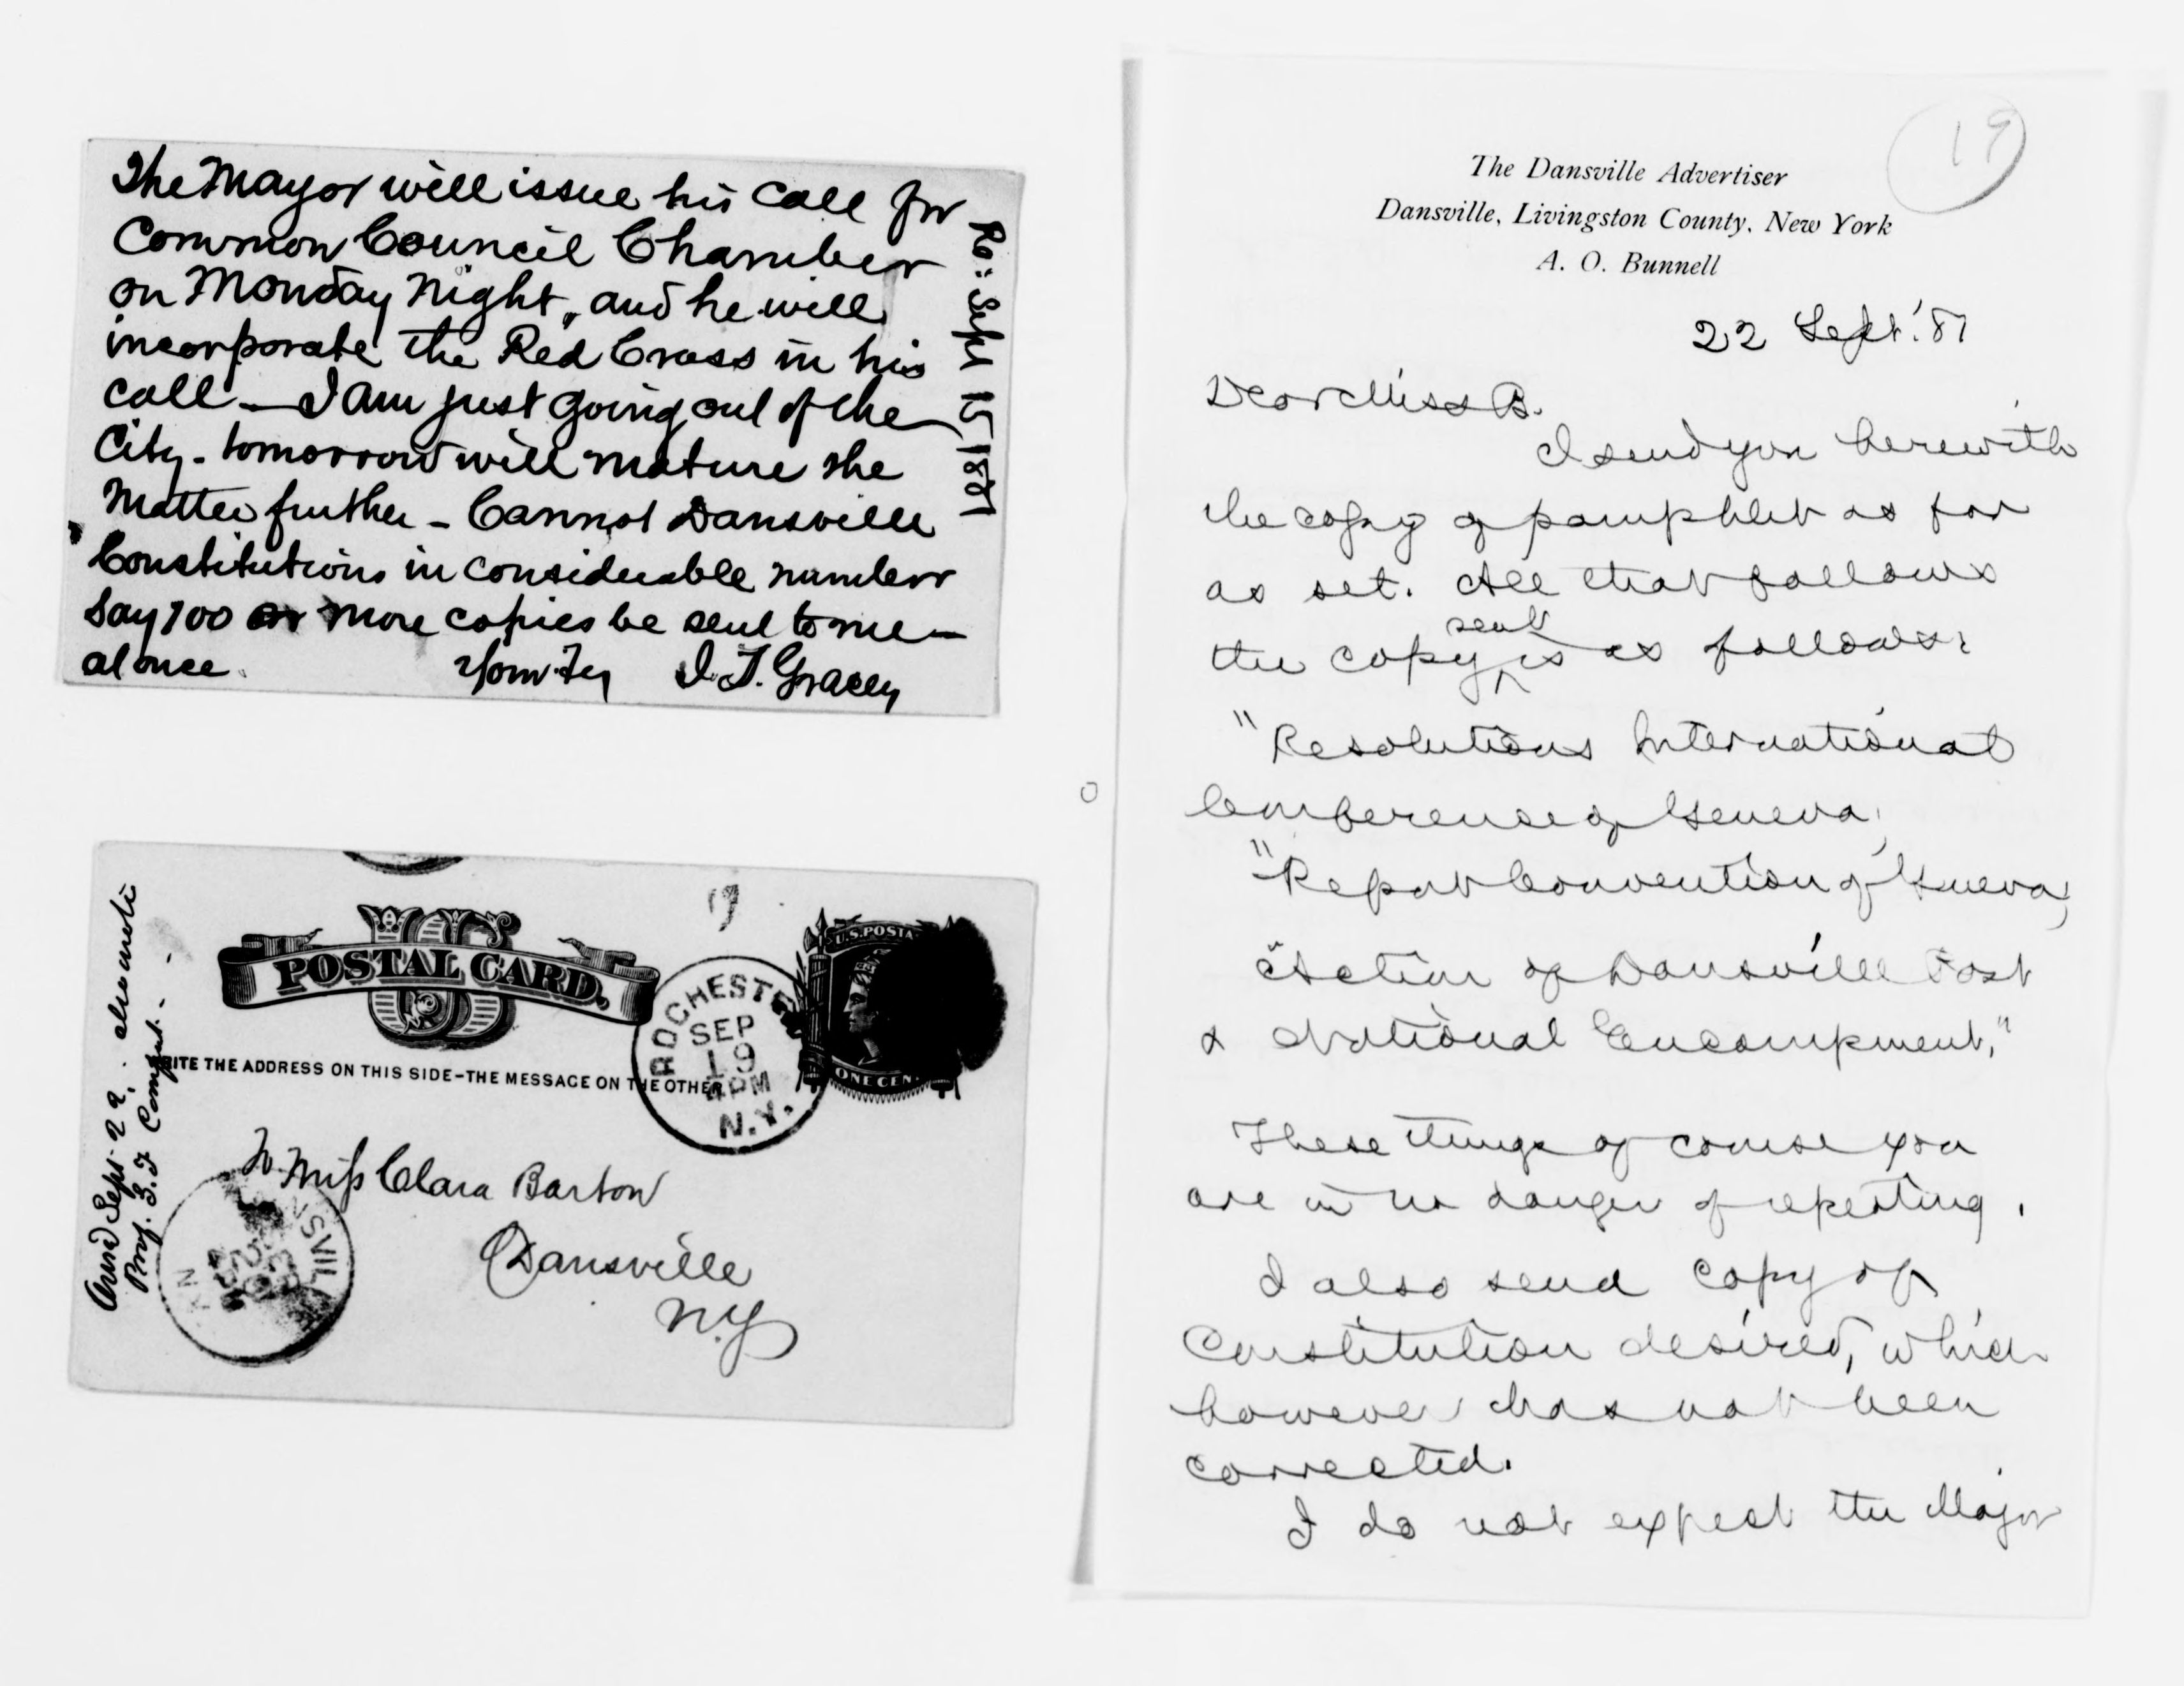 The Mayor will issue his call for
Common Council Chamber
on Monday night, and he will
incorporate the Red Cross in his
call — I am just going out of the
City - tomorrow will mature the
Matter further - Cannot Dansville
Constitutions in considerable numbers
Say 100 or more copies be sent to me -
at once. Yours Try J. T. Gracey
Ro: Sept 15 1881
19
POSTAL CARD.
WRITE THE ADDRESS ON THIS SIDE-THE MESSAGE ON THE OTHER
U.S. POSTA
ONE CEN
ROCHESTER
SEP
19
4PM
N.Y.
To Miss Clara Barton
Dansville
N.Y
NSVIL
N.Y.
Sept 22.
Prof.
19
The Dansville Advertiser
Dansville, Livingston County, New York
A. O. Bunnell
22 Sept. '81
Dear Miss B.
I send you herewith
the copy of pamphlet as far
as set. All that follows
the copy sent is as follows:
"Resolutions International
Conference of Geneva,
"Report Convention of Geneva,
"Action of Dansville Post
& National Encampment,"
These things of course you
are in no danger of repeating.
I also send copy of
Constitution desired, which
however has not been
corrected.
I do not expect the Major